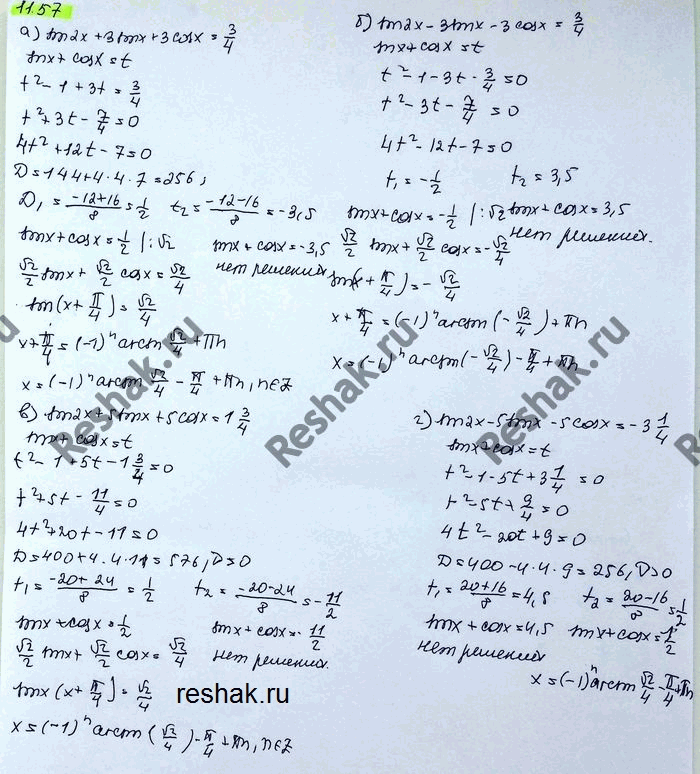 11.57
а) sin2x + 3sinx + 3cosx = 3/4
sinx + cosx = t
t² - 1 + 3t = 3/4
t² + 3t - 7/4 = 0
4t² + 12t - 7 = 0
D = 144 + 4·4·7 = 256;
D₁ = (-12+16)/8 = 1/2 t₂ = (-12-16)/8 = -3,5
sinx + cosx = 1/2 |:√2 sinx + cosx = -3,5
нет решений
√2/2 sinx + √2/2 cosx = √2/4
sin(x + π/4) = √2/4
x + π/4 = (-1)ⁿ arcsin √2/4 + πn
x = (-1)ⁿ arcsin √2/4 - π/4 + πn, n∈Z
б) sin2x - 3sinx - 3cosx = 3/4
sinx + cosx = t
t² - 1 - 3t - 3/4 = 0
t² - 3t - 7/4 = 0
4t² - 12t - 7 = 0
t₁ = -1/2 t₂ = 3,5
sinx + cosx = -1/2 |:√2 sinx + cosx = 3,5
нет решений.
√2/2 sinx + √2/2 cosx = -√2/4
sin(x + π/4) = -√2/4
x + π/4 = (-1)ⁿ arcsin(-√2/4) + πn
x = (-1)ⁿ arcsin(-√2/4) - π/4 + πn
в) sin2x + 5sinx + 5cosx = 1 3/4
sinx + cosx = t
t² - 1 + 5t - 1 3/4 = 0
t² + 5t - 11/4 = 0
4t² + 20t - 11 = 0
D = 400 + 4·4·11 = 576, D>0
t₁ = (-20+24)/8 = 1/2 t₂ = (-20-24)/8 = -11/2
sinx + cosx = 1/2 sinx + cosx = -11/2
√2/2 sinx + √2/2 cosx = √2/4 нет решений.
sinx (x + π/4) = √2/4
x = (-1)ⁿ arcsin(√2/4) - π/4 + πn, n∈Z
г) sin2x - 5sinx - 5cosx = -3 1/4
sinx + cosx = t
t² - 1 - 5t + 3 1/4 = 0
t² - 5t + 9/4 = 0
4t² - 20t + 9 = 0
D = 400 - 4·4·9 = 256, D>0
t₁ = (20+16)/8 = 4,5 t₂ = (20-16)/8 = 1/2
sinx + cosx = 4,5 sinx + cosx = 1/2
нет решений
x = (-1)ⁿ arcsin √2/4 - π/4 + πn
reshak.ru
Reshak.ru
Reshak.ru
Reshak.ru